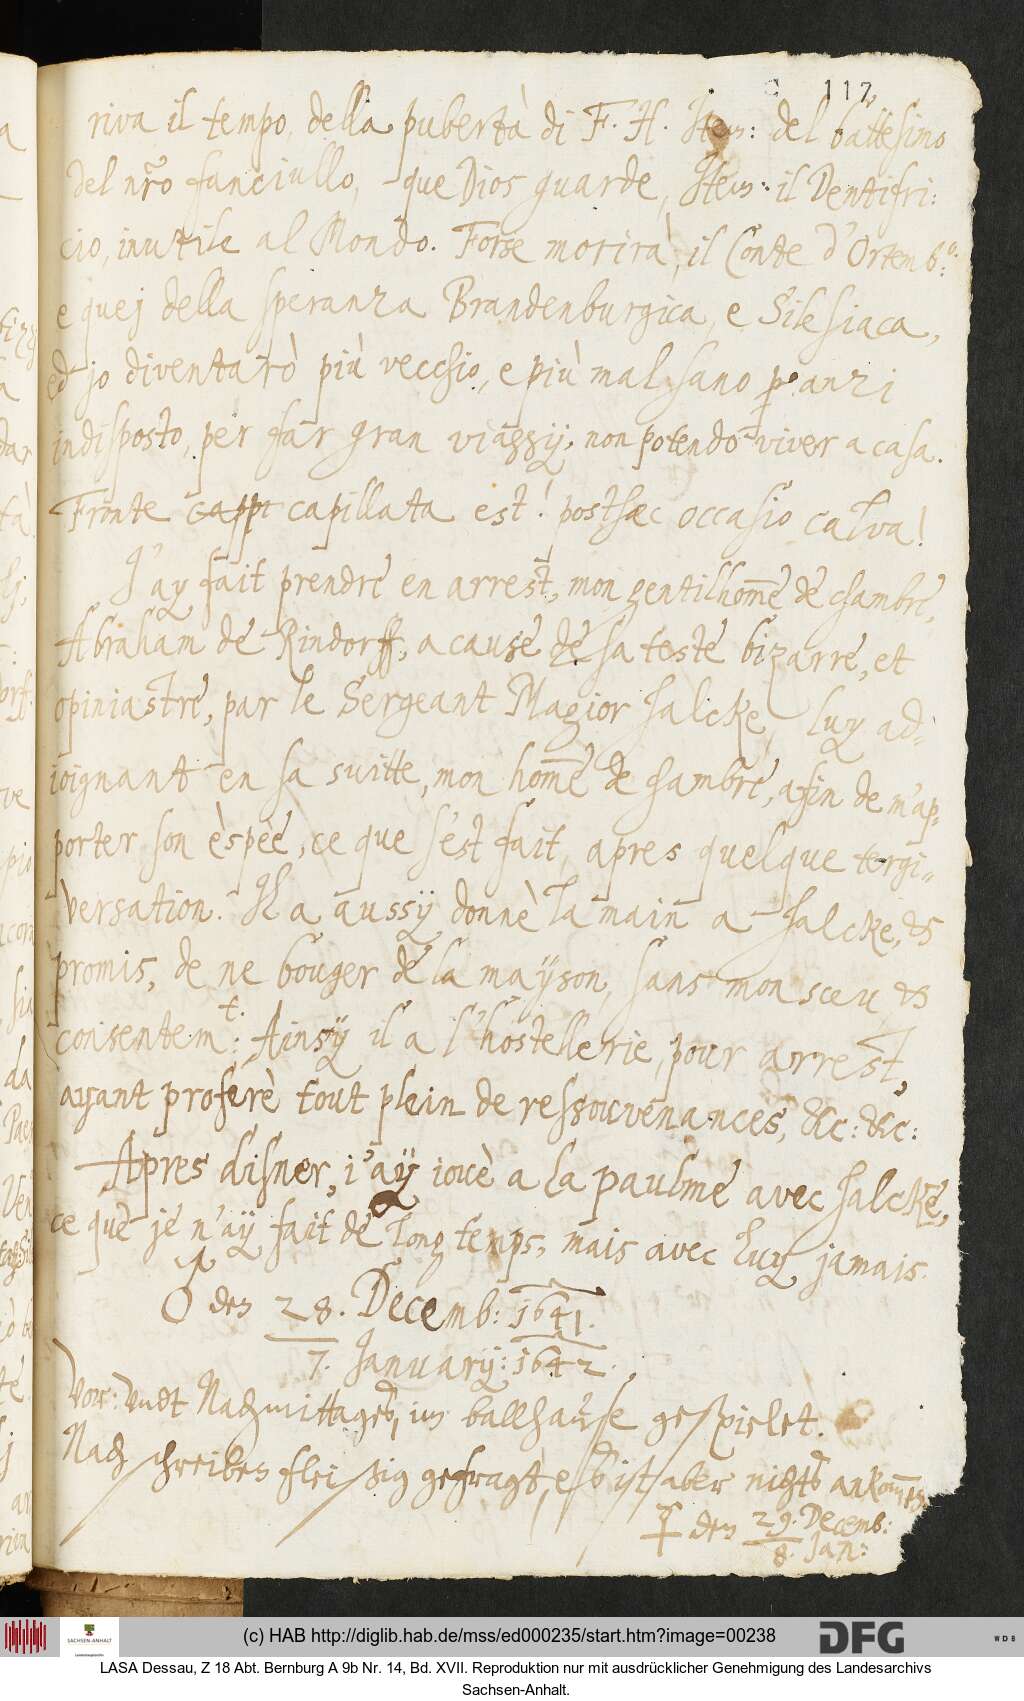 117
riva il tempo, della pubertà di F. H. Item: del battesimo
del nr̃o fanciullo, que Dios guarde, Item: il Dentifri:
cio, inutile al Mondo. Forse morirà, il Conte d'Ortemb:
e quej della speranza Brandenburgica, e Silesiaca,
ed jo diventarò più vecchio, e più mal sano p anzi
indisposto, per far gran viaggij, non potendo viver a casa.
Fronte cappi capillata est! posthæc occasio calva!
J'ay fait prendre en arrest, mon gentilhom̃e de chambre,
Abraham de Rindorff, a cause de sa teste bizarre, et
opiniastre, par le Sergeant Magior Halcke, luy ad-
ioignant en sa suitte, mon hom̃e de chambre, afin de m'ap-
porter son èspèe, ce que s'est fait, apres quelque tergi-
versation. Il a aussÿ donnè la main a Halcke, &
promis, de ne bouger de la maÿson, sans mon sceu, &
consentem:t Ainsÿ il a l'hostellerie, pour arrest,
ayant proferè tout plein de ressouvenances, &c: &c:
Apres disner, i'aÿ iouè a la paulme avec Halcke,
ce què je n'aÿ fait de long temps, mais avec luy jamais.
♂ den 28. Decemb: 1641.
7. Januarij: 1642.
Vor: vndt Nachmittages, im ballhause gespielet.
Nach schreiben fleißig gefragt, es ist aber nichts ankom̃en
☿ den 29. Decemb:
8. Jan:
(c) HAB http://diglib.hab.de/mss/ed000235/start.htm?image=00238
SACHSEN-ANHALT
DFG
WDB
LASA Dessau, Z 18 Abt. Bernburg A 9b Nr. 14, Bd. XVII. Reproduktion nur mit ausdrücklicher Genehmigung des Landesarchivs
Sachsen-Anhalt.